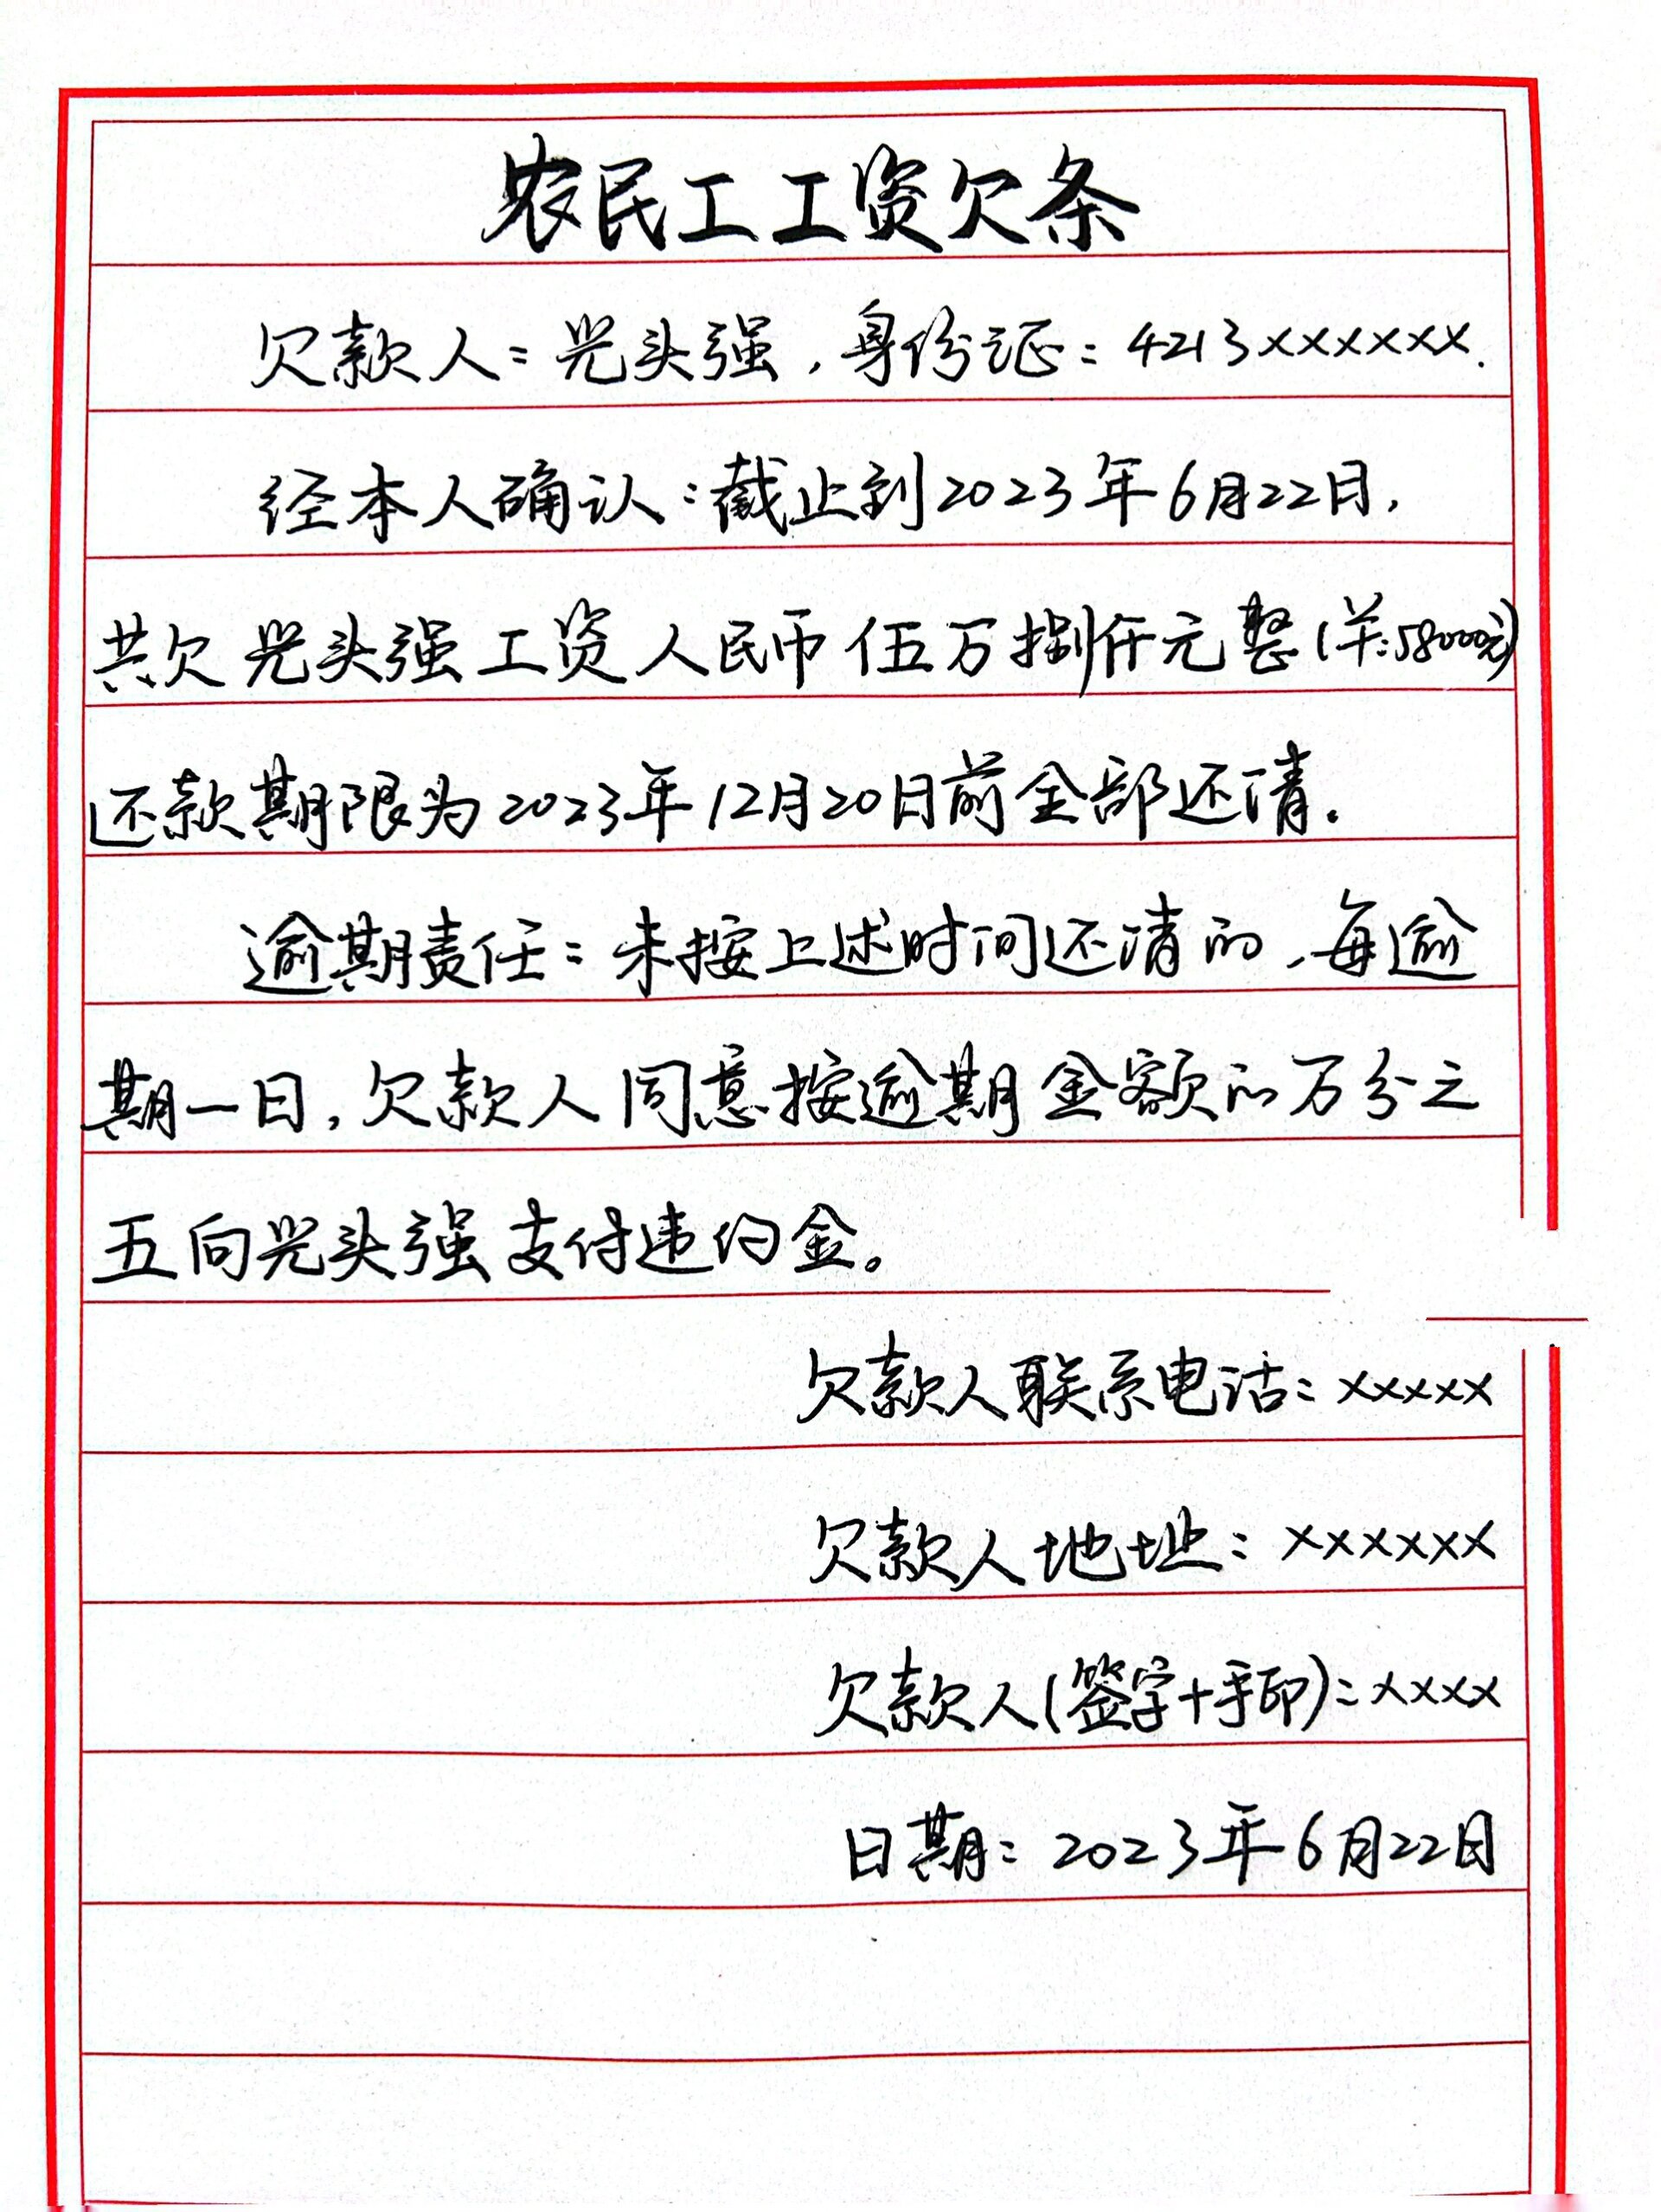 农民工工资欠条
欠款人：光头强，身份证：4213xxxxxx.
经本人确认：截止到2023年6月22日，
共欠光头强工资人民币伍万捌仟元整(羊:58000元)
还款期限为2023年12月20日前全部还清.
逾期责任：未按上述时间还清的，每逾
期一日，欠款人同意按逾期金额的万分之
五向光头强支付违约金。
欠款人联系电话：xxxxx
欠款人地址：xxxxxx
欠款人(签字+手印)：xxxx
日期：2023年6月22日